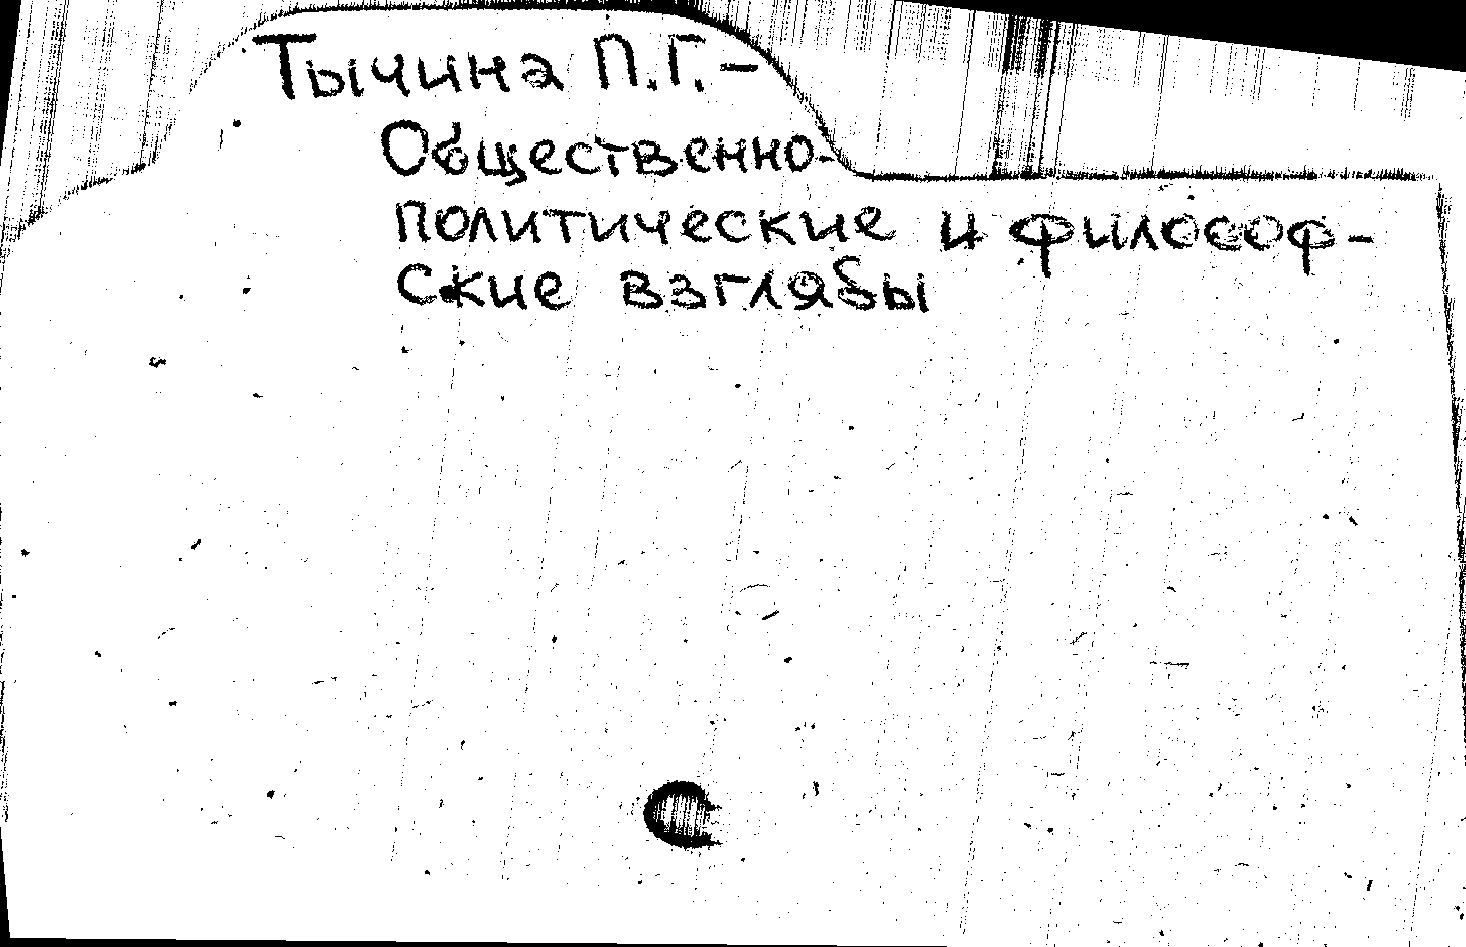 Тычина П.Г. –
Общественно-
политические и философ-
ские взгляды